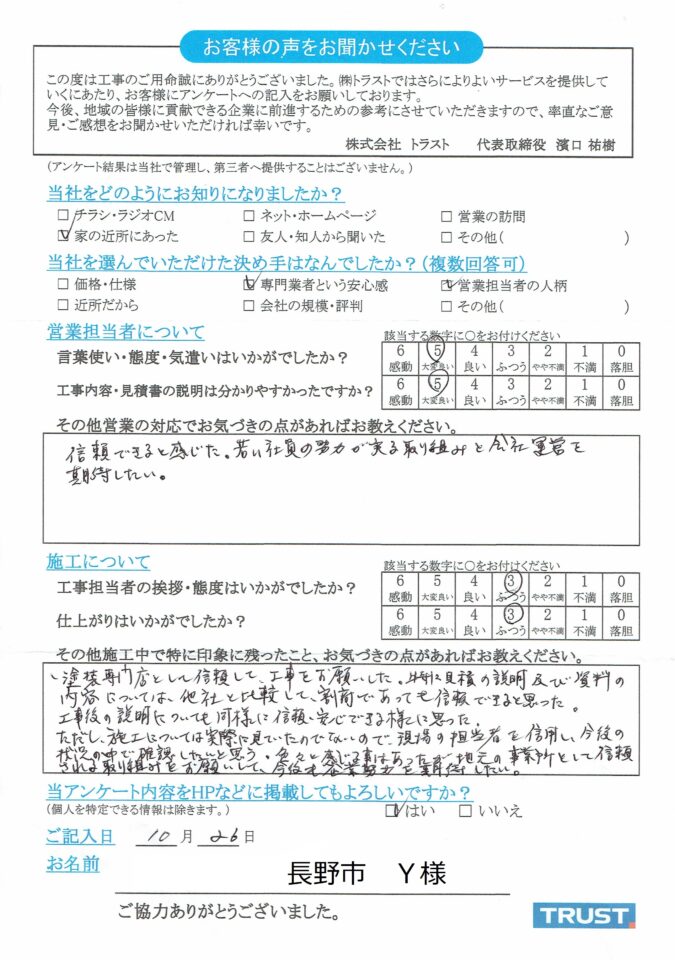 お客様の声をお聞かせください
この度は工事のご用命誠にありがとうございました。㈱トラストではさらによりよいサービスを提供して
いくにあたり、お客様にアンケートへの記入をお願いしております。
今後、地域の皆様に貢献できる企業に前進するための参考にさせていただきますので、率直なご意
見・ご感想をお聞かせいただければ幸いです。
株式会社 トラスト 代表取締役 濱口 祐樹
(アンケート結果は当社で管理し、第三者へ提供することはございません。)
当社をどのようにお知りになりましたか？
□ チラシ・ラジオCM □ ネット・ホームページ □ 営業の訪問
☑ 家の近所にあった □ 友人・知人から聞いた □ その他( )
当社を選んでいただけた決め手はなんでしたか？(複数回答可)
□ 価格・仕様 ☑ 専門業者という安心感 ☑ 営業担当者の人柄
□ 近所だから □ 会社の規模・評判 □ その他( )
営業担当者について 該当する数字に○をお付けください
言葉使い・態度・気遣いはいかがでしたか？ 6 5 4 3 2 1 0
感動 大変良い 良い ふつう やや不満 不満 落胆
工事内容・見積書の説明は分かりやすかったですか？ 6 5 4 3 2 1 0
感動 大変良い 良い ふつう やや不満 不満 落胆
その他営業の対応でお気づきの点があればお教えください。
信頼できると感じた。若い社員の努力が実る取り組みと会社運営を
期待したい。
施工について 該当する数字に○をお付けください
工事担当者の挨拶・態度はいかがでしたか？ 6 5 4 3 2 1 0
感動 大変良い 良い ふつう やや不満 不満 落胆
仕上がりはいかがでしたか？ 6 5 4 3 2 1 0
感動 大変良い 良い ふつう やや不満 不満 落胆
その他施工中で特に印象に残ったこと、お気づきの点があればお教えください。
塗装専門店として信頼して、工事をお願いした。特に見積の説明及び資料の
内容については、他社と比較して、割高であっても信頼できると思った。
工事後の説明についても同様に信頼・安心できる様に思った。
ただし、施工については実際に見ていたのでないので、現場の担当者を信用し、今後の
状況の中で確認したいと思う。色々と感じる事はあったが、地元の事業所として信頼
される取り組みをお願いして、今後も企業努力を期待したい。
当アンケート内容をHPなどに掲載してもよろしいですか？
(個人を特定できる情報は除きます。) ☑はい □ いいえ
ご記入日 10 月 26 日
お名前
長野市 Y様
ご協力ありがとうございました。
TRUST.